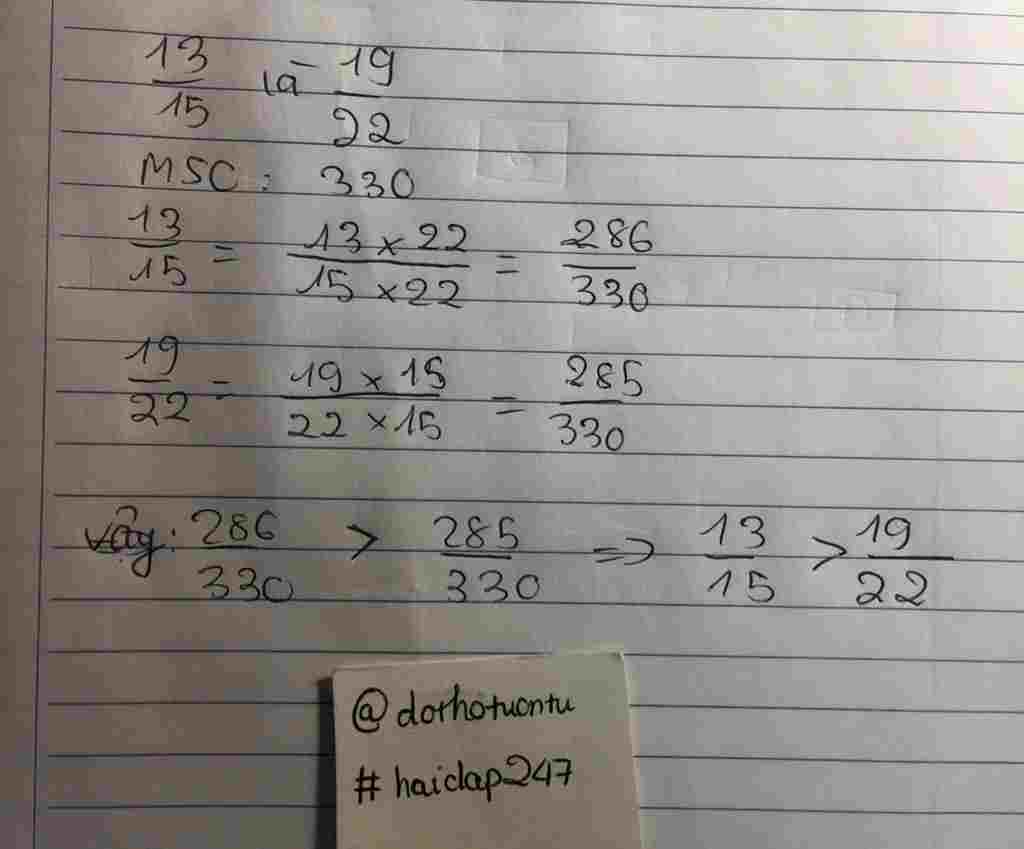 13/15 là 19/22
MSC: 330
13/15 = 13 x 22 / 15 x 22 = 286/330
19/22 = 19 x 15 / 22 x 15 = 285/330
vậy: 286/330 > 285/330 => 13/15 > 19/22
@dorhotuontu
# haiclap247